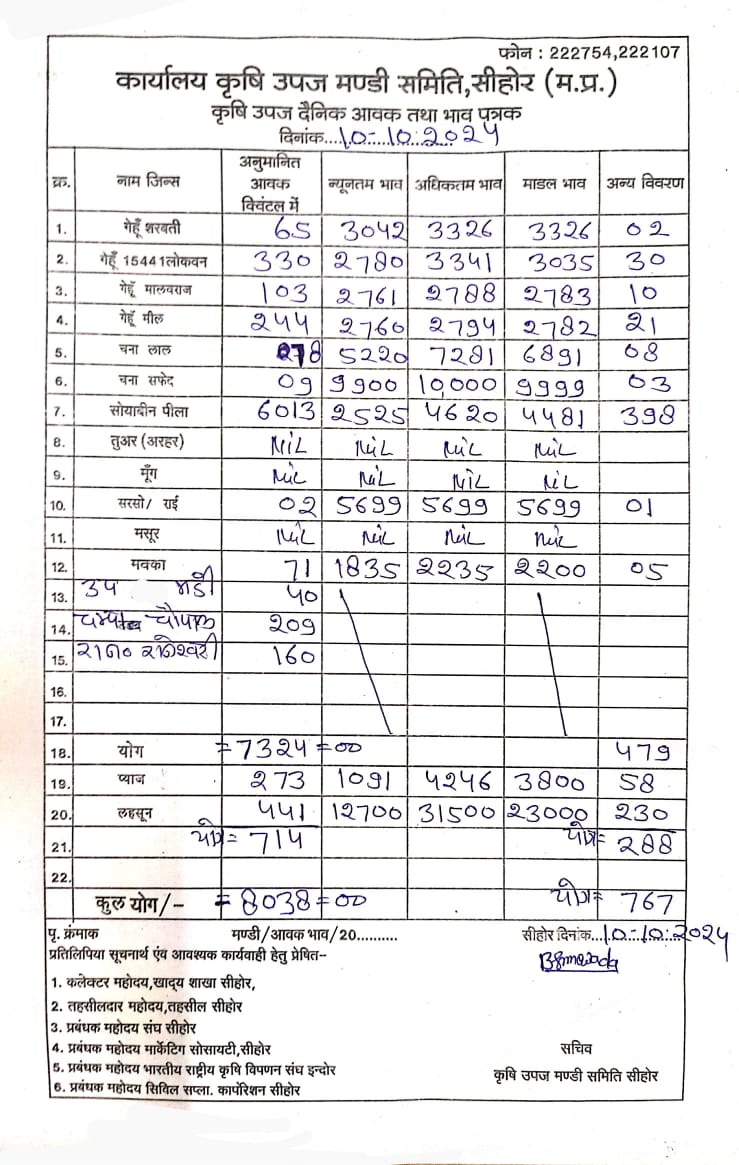 फोन : 222754,222107
कार्यालय कृषि उपज मण्डी समिति,सीहोर (म.प्र.)
कृषि उपज दैनिक आवक तथा भाव पत्रक
दिनांक...10-10-2024
क्र. नाम जिन्स अनुमानित आवक क्विंटल में न्यूनतम भाव अधिकतम भाव माडल भाव अन्य विवरण
1. गेहूँ शरबती 65 3042 3326 3326 02
2. गेहूँ 15441लोकवन 330 2780 3341 3035 30
3. गेहूँ मालवराज 103 2761 2788 2783 10
4. गेहूँ मील 244 2760 2794 2782 21
5. चना लाल 278 5220 7281 6891 08
6. चना सफेद 09 9900 10,000 9999 03
7. सोयाबीन पीला 6013 2525 4620 4481 398
8. तुअर (अरहर) NIL NIL NIL NIL
9. मूँग NIL NIL NIL NIL
10. सरसो/ राई 02 5699 5699 5699 01
11. मसूर NIL NIL NIL NIL
12. मक्का 71 1835 2235 2200 05
13. उप मडी 40
14. चौपाल 209
15. 160
16.
17.
18. योग =7324=00 479
19. प्याज 273 1091 4246 3800 58
20. लहसून 441 12700 31500 23000 230
21. योग= 714 योग= 288
22.
कुल योग/- =8038=00 योग= 767
पृ. क्रंमाक मण्डी/आवक भाव/20.......... सीहोर दिनांक...10-10-2024
प्रतिलिपिया सूचनार्थ एंव आवश्यक कार्यवाही हेतु प्रेषित-
1. कलेक्टर महोदय,खाद्य शाखा सीहोर,
2. तहसीलदार महोदय,तहसील सीहोर
3. प्रबंधक महोदय संघ सीहोर
4. प्रबंधक महोदय मार्केटिग सोसायटी,सीहोर सचिव
5. प्रबंधक महोदय भारतीय राष्ट्रीय कृषि विपणन संघ इन्दोर कृषि उपज मण्डी समिति सीहोर
6. प्रबंधक महोदय सिविल सप्ला. कार्पोरेशन सीहोर